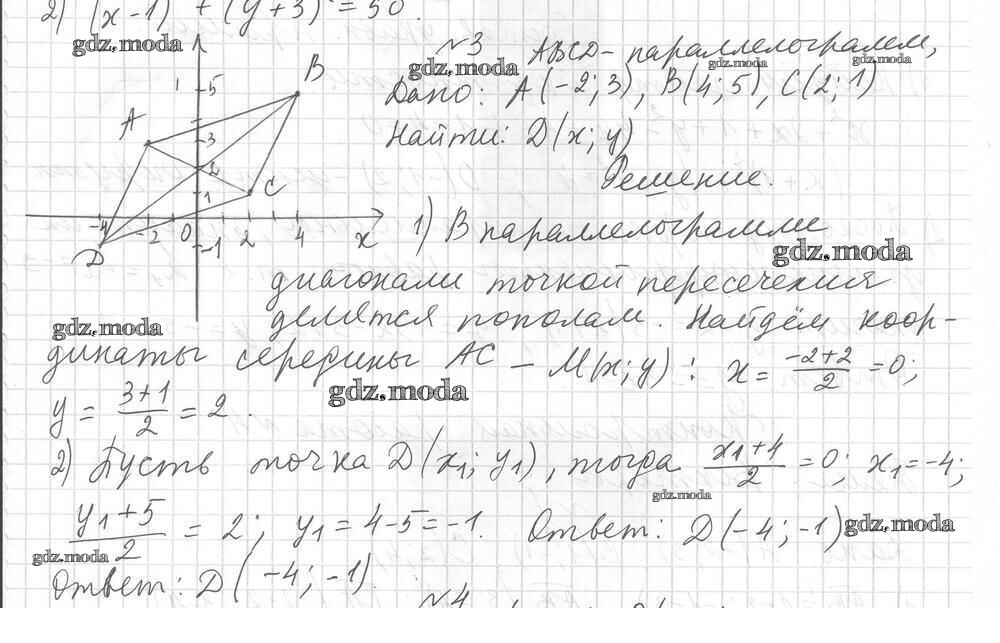 2) (x-1)² + (y+3)² = 50.
gdz.moda
№3 ABCD - параллелограмм,
gdz.moda gdz.moda gdz.moda
Дано: A(-2; 3), B(4; 5), C(2; 1)
Найти: D(x; y)
Решение.
1 5 B
A 3
2
1 C
-4 -2 0 2 4 x
D -1
1) В параллелограмме
gdz.moda
диагонали точкой пересечения
gdz.moda
делятся пополам. Найдём коор-
динаты середины AC - M(x; y): x = (-2+2)/2 = 0;
gdz.moda
y = (3+1)/2 = 2.
2) Пусть точка D(x₁; y₁), тогда (x₁+4)/2 = 0; x₁ = -4;
gdz.moda
(y₁+5)/2 = 2; y₁ = 4-5 = -1. Ответ: D(-4; -1)
gdz.moda gdz.moda
Ответ: D(-4; -1).
№4